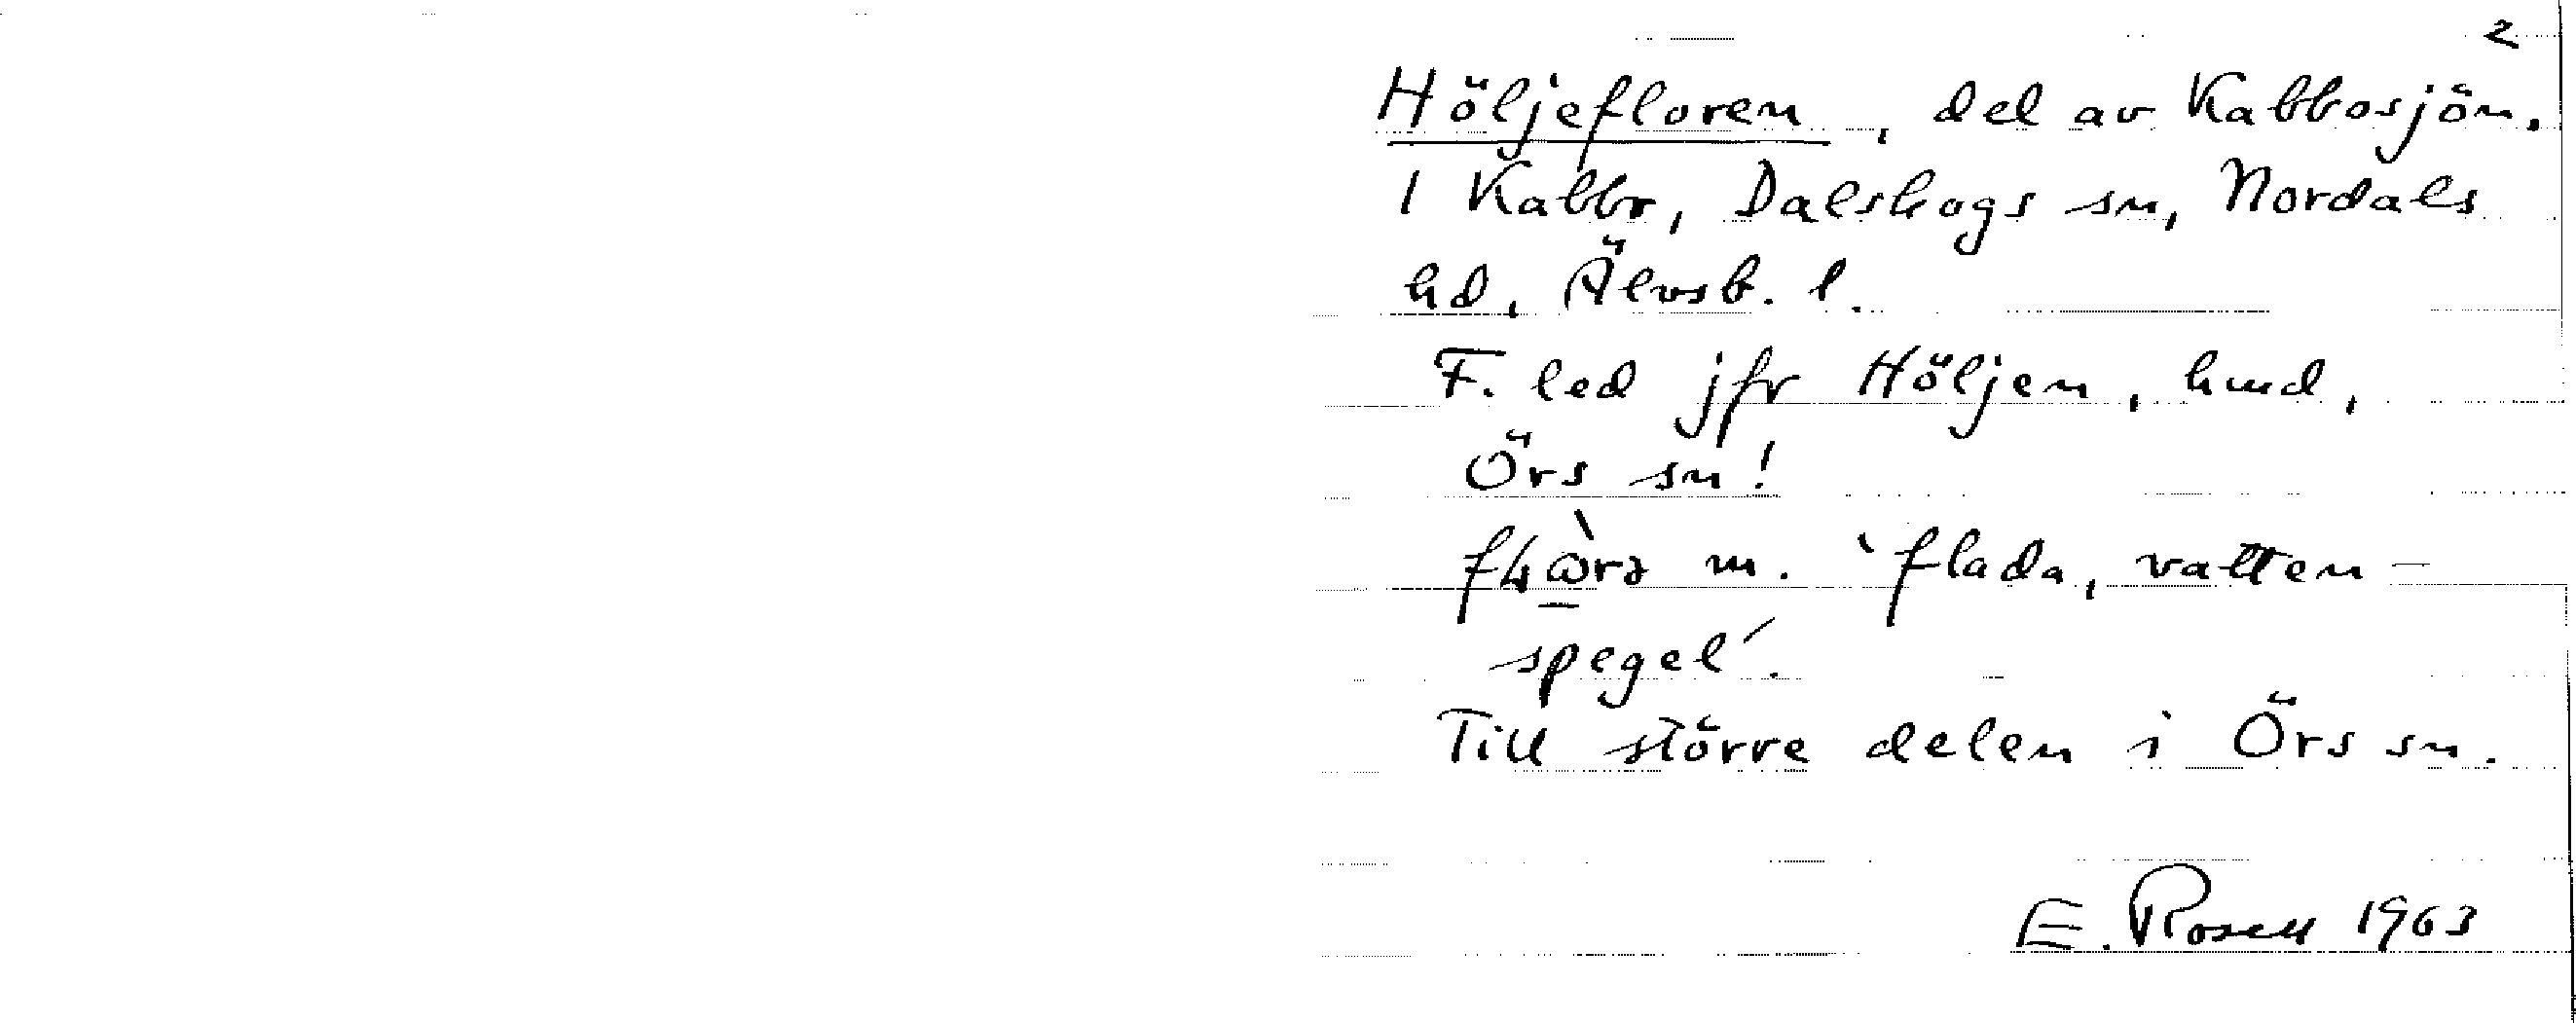 2
Höljefloren, del av Kabbosjön.
I Kabbo, Dalskogs sn, Nordals
hd, Älvsb. l.
F. led jfr Höljen, hmd,
Örs sn!
m. ‛flada, vatten-
spegel'.
Till större delen i Örs sn.
E. Rosell 1963